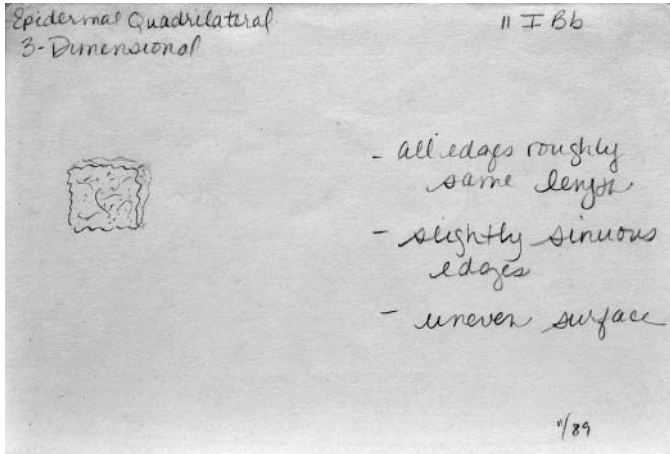 Epidermal Quadrilateral
3-Dimensional
11 I Bb
- all edges roughly
same length
- slightly sinuous
edges
- uneven surface
11/89